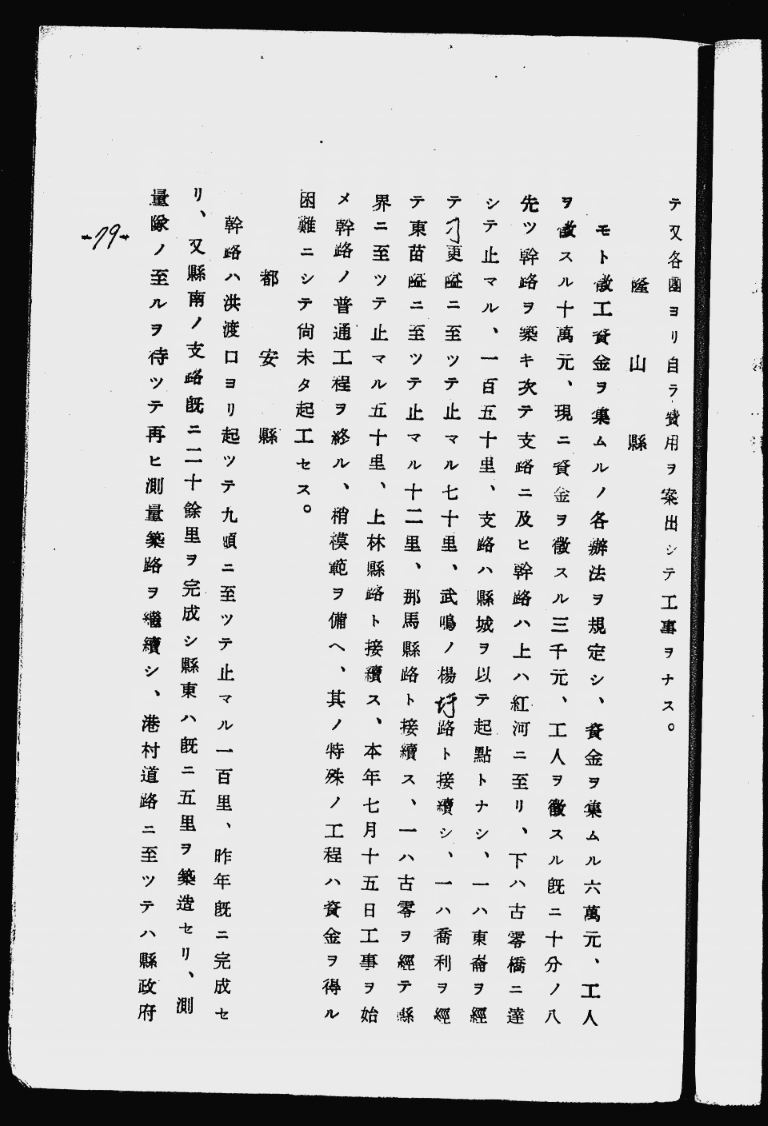 テ又各團ヨリ自ラ費用ヲ案出シテ工事ヲナス。
隆山縣
モト徴工資金ヲ集ムルノ各辦法ヲ規定シ、資金ヲ集ムル六萬元、工人
ヲ徴スル十萬元、現ニ資金ヲ徴スル三千元、工人ヲ徴スル既ニ十分ノ八
先ツ幹路ヲ築キ次テ支路ニ及ヒ幹路ハ上ハ紅河ニ至リ、下ハ古零橋ニ達
シテ止マル、一百五十里、支路ハ縣城ヲ以テ起點トナシ、一ハ東崙ヲ經
テ刁更隘ニ至ツテ止マル七十里、武鳴ノ楊圩路ト接續シ、一ハ喬利ヲ經
テ東苗隘ニ至ツテ止マル十二里、那馬縣路ト接續ス、一ハ古零ヲ經テ縣
界ニ至ツテ止マル五十里、上林縣路ト接續ス、本年七月十五日工事ヲ始
メ幹路ノ普通工程ヲ終ル、稍模範ヲ備ヘ、其ノ特殊ノ工程ハ資金ヲ得ル
困難ニシテ尙未タ起工セス。
都安縣
幹路ハ洪渡口ヨリ起ツテ九頃ニ至ツテ止マル一百里、昨年既ニ完成セ
リ、又縣南ノ支路既ニ二十餘里ヲ完成シ縣東ハ既ニ五里ヲ築造セリ、測
量隊ノ至ルヲ待ツテ再ヒ測量築路ヲ繼續シ、港村道路ニ至ツテハ縣政府
-79-